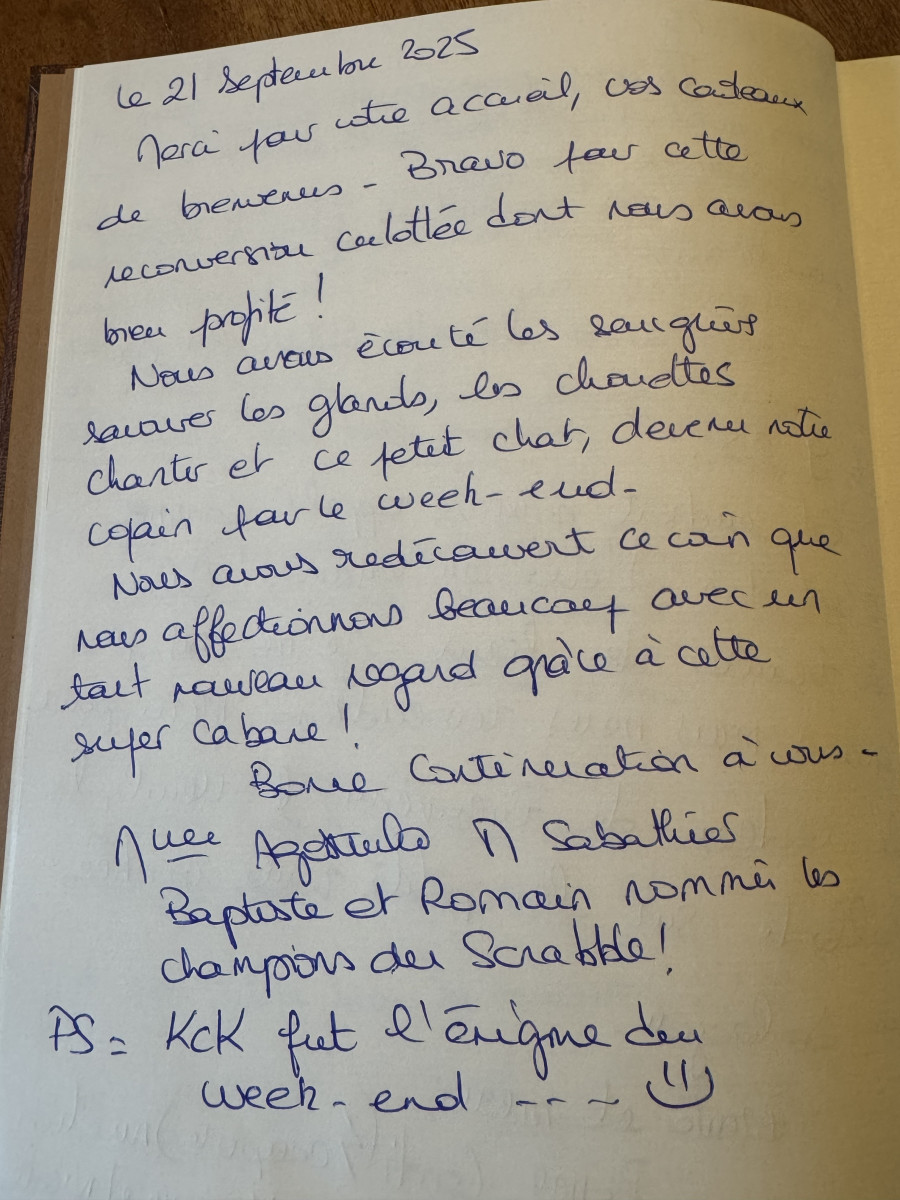 le 21 Septembre 2025
Merci pour votre accueil, vos cadeaux
de bienvenus - Bravo pour cette
reconversion culottée dont nous avons
bien profité !
Nous avons écouté les sangliers
savourer les glands, les chouettes
chanter et ce petit chat, devenu notre
copain pour le week-end -
Nous avons redécouvert ce coin que
nous affectionnons beaucoup avec un
tout nouveau regard grâce à cette
super cabane !
Bonne Continuation à vous -
Mme M Sabathier
Baptiste et Romain nommés les
champions du Scrabble !
PS = KcK fut l'énigme du
week-end - - - ~